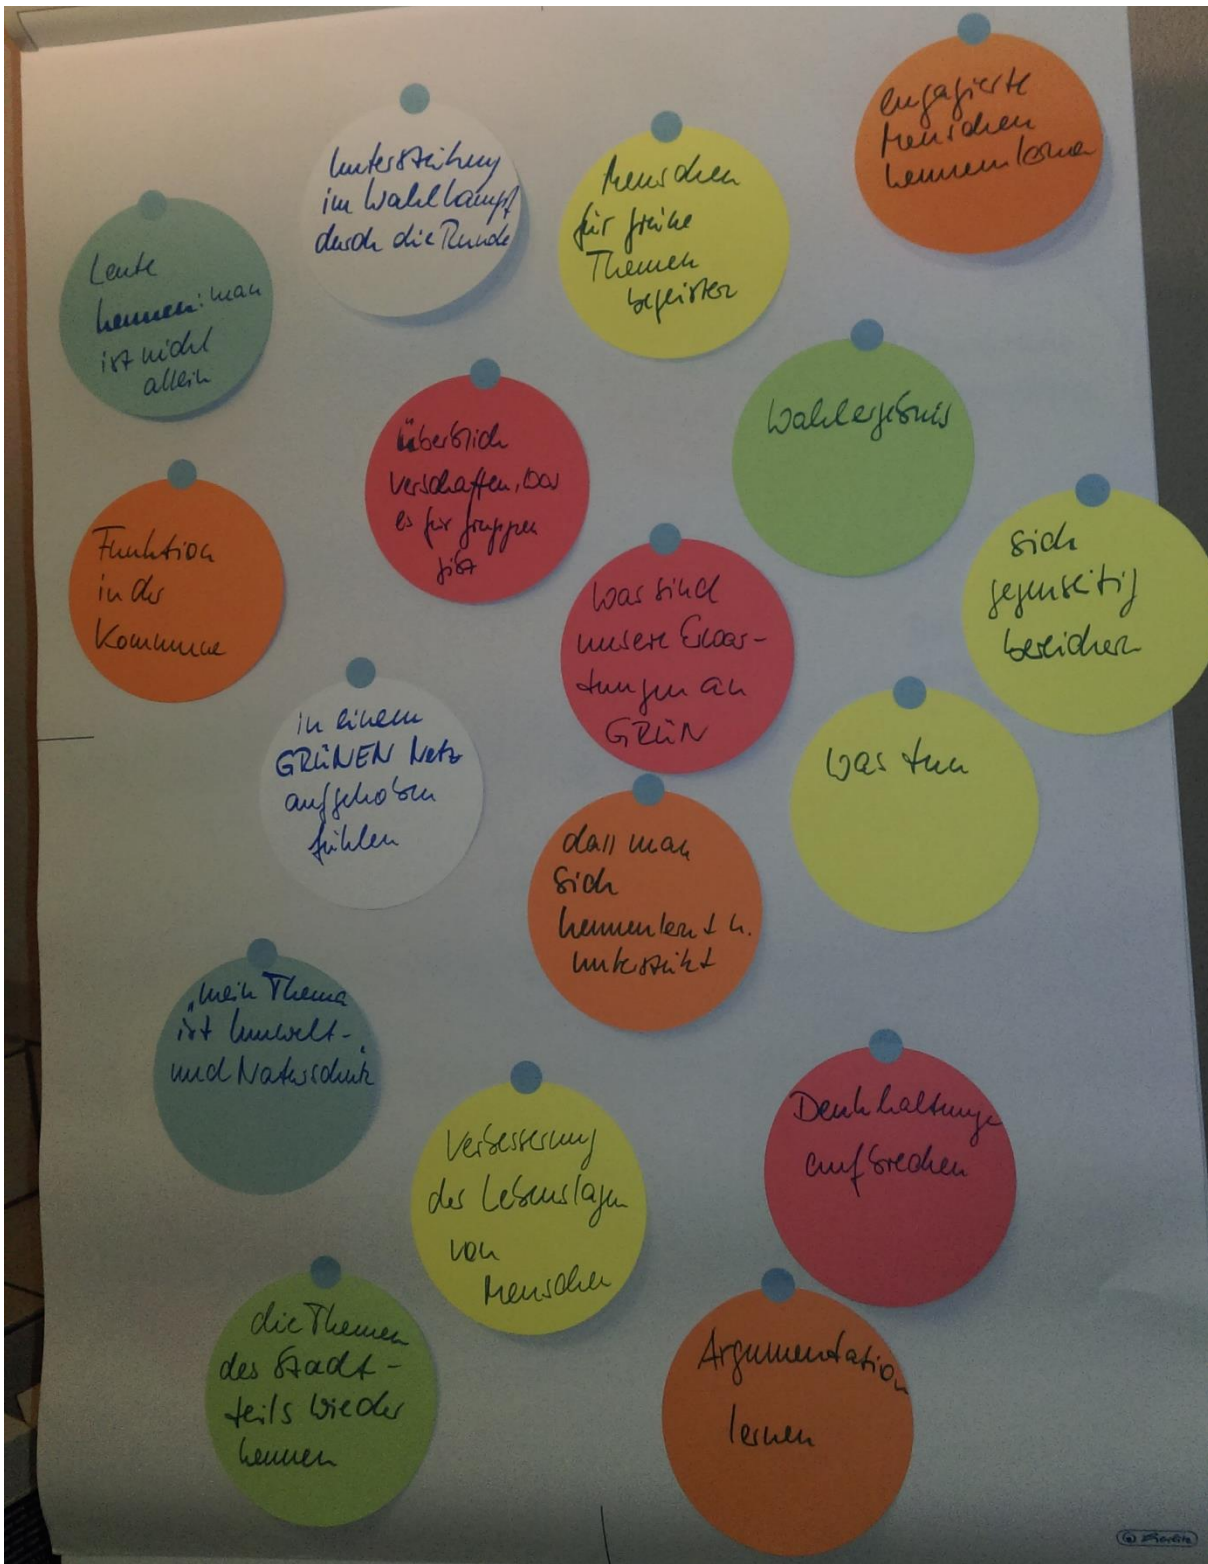 engagierte
Menschen
kennenlernen
Unterstützung
im Wahlkampf
durch die Runde
Menschen
für grüne
Themen
begeistern
Leute
kennen: man
ist nicht
allein
Überblick
verschaffen, was
es für Gruppen
gibt
Wahlergebnis
Funktion
in der
Kommune
was sind
unsere Erwar-
tungen an
GRÜN
sich
gegenseitig
bereichern
in einem
GRÜNEN Netz
aufgehoben
fühlen
was tun
dass man
sich
kennenlernt u.
unterstützt
"mein Thema
ist Umwelt-
und Naturschutz"
Verbesserung
der Lebenslagen
von
Menschen
Denkhaltungen
aufbrechen
die Themen
des Stadt-
teils wieder
kennen
Argumentation
lernen